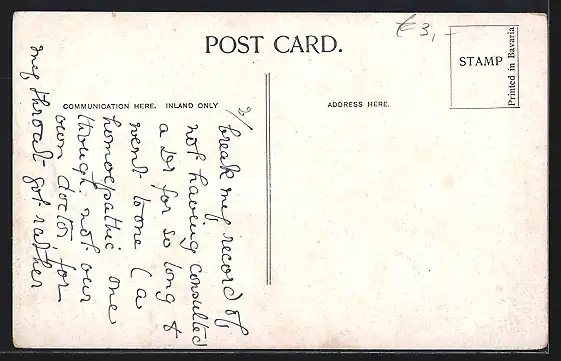 € 3,-
POST CARD.
STAMP
Printed in Bavaria
COMMUNICATION HERE. INLAND ONLY
ADDRESS HERE.
2/
break my record of
not having consulted
a Dr for so long &
went to one (a
homoepathic one
though not our
own doctor, for
my throat - got rather